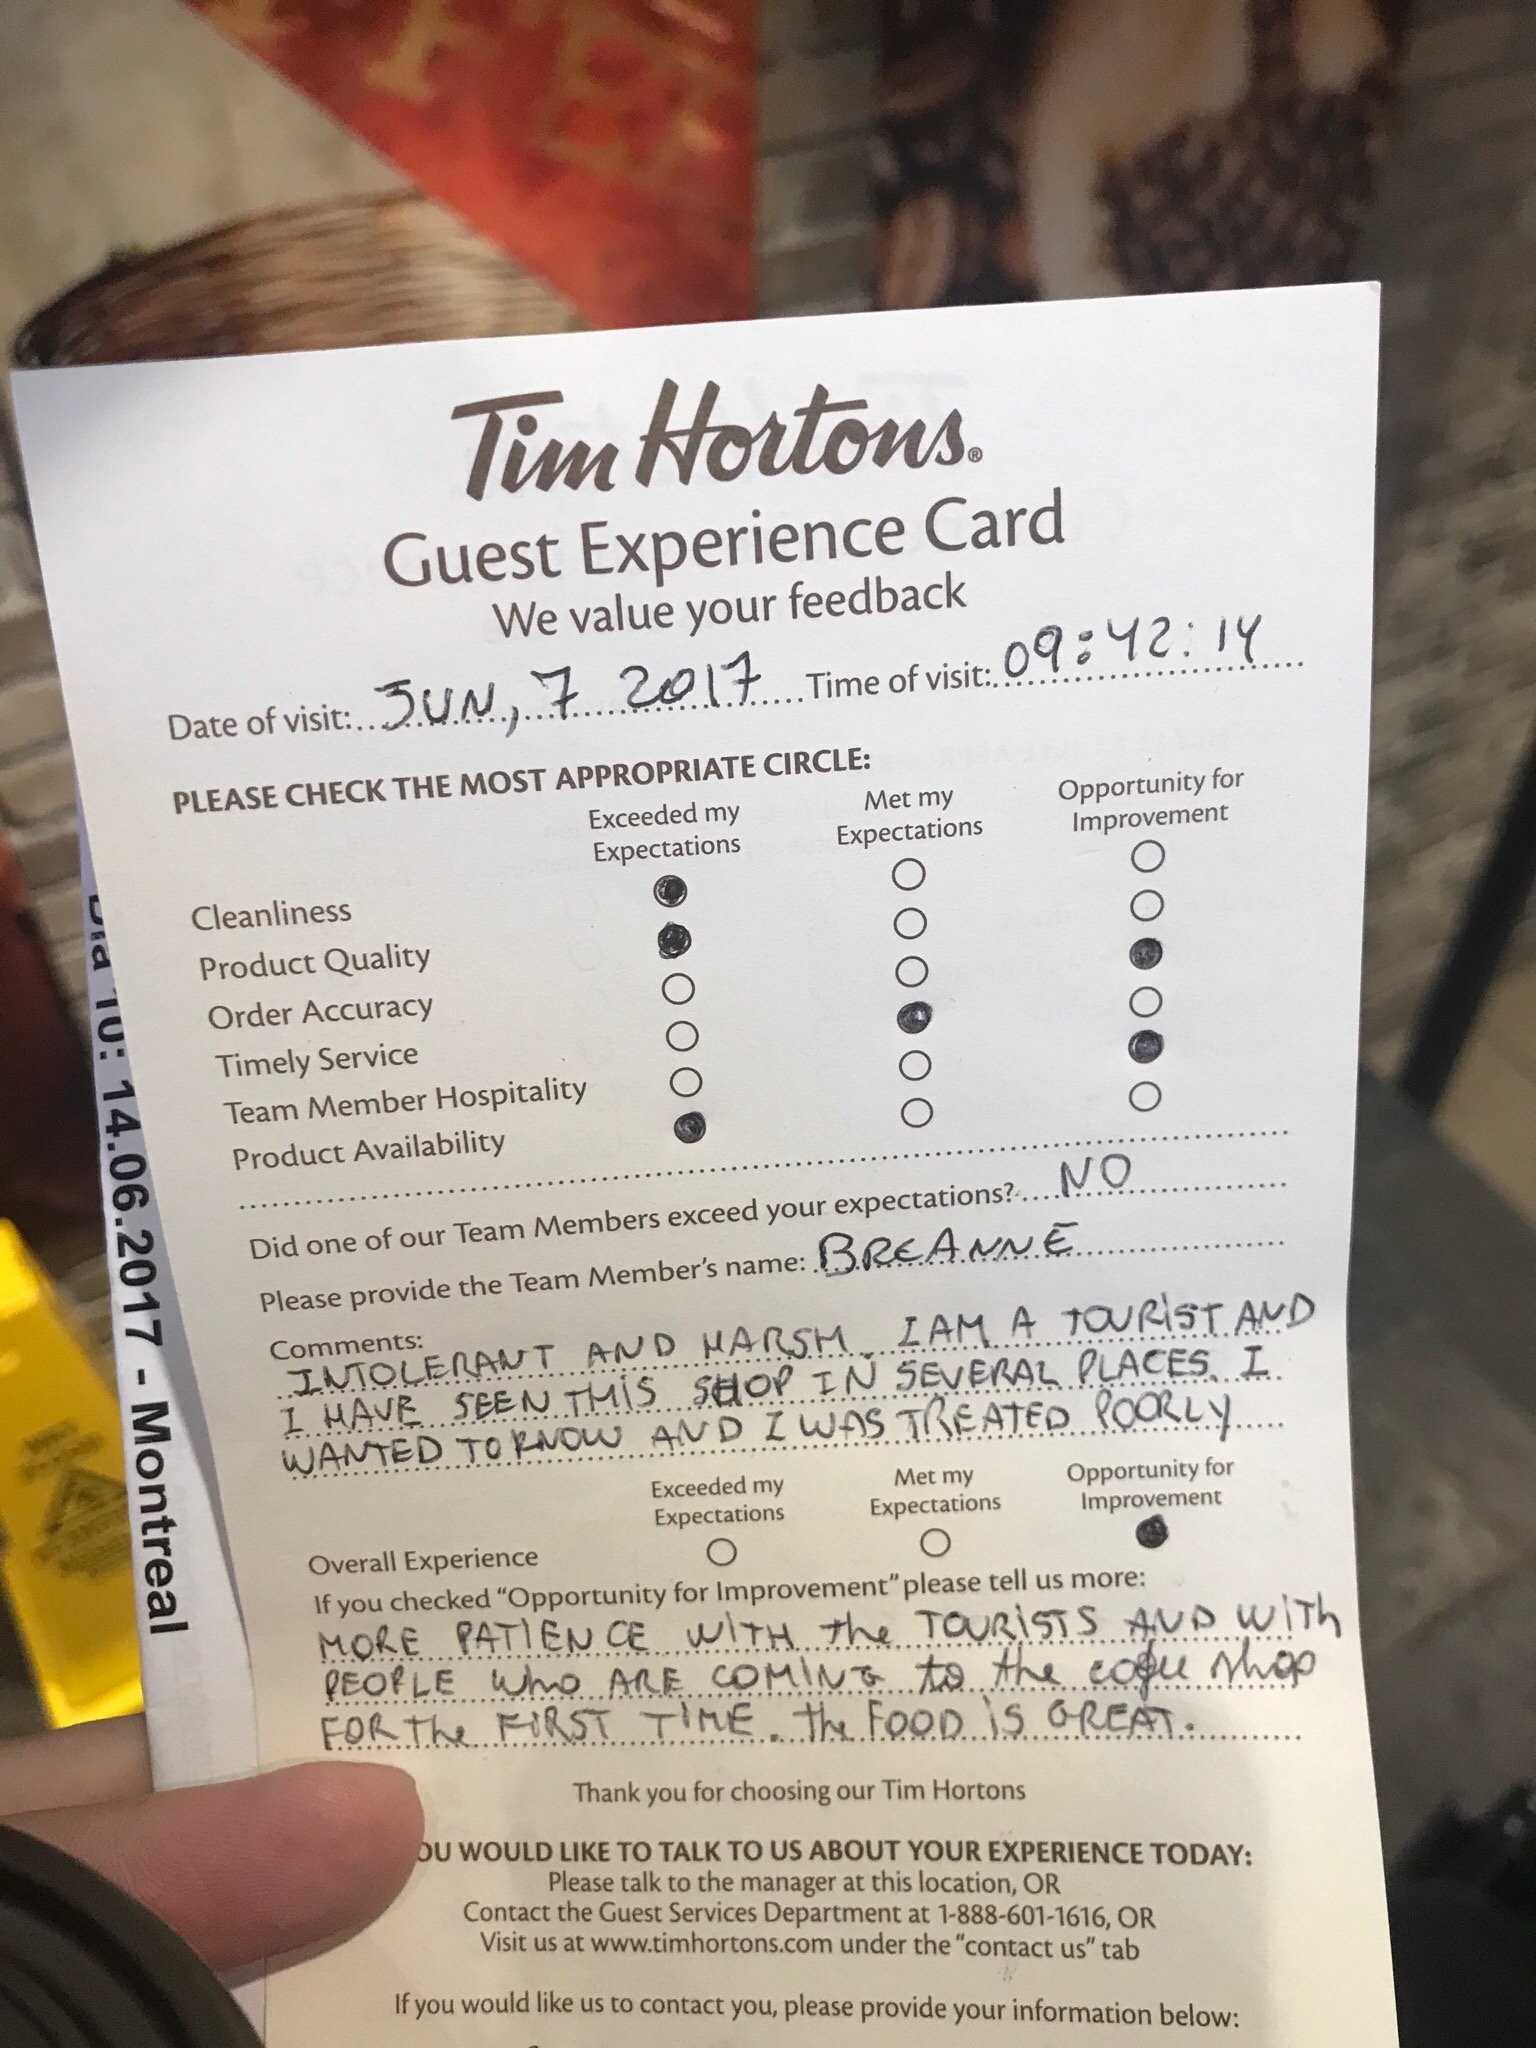 Tim Hortons®
Guest Experience Card
We value your feedback
Date of visit: JUN, 7 2017 Time of visit: 09:42:14
PLEASE CHECK THE MOST APPROPRIATE CIRCLE:
Exceeded my Expectations Met my Expectations Opportunity for Improvement
Cleanliness
Product Quality
Order Accuracy
Timely Service
Team Member Hospitality
Product Availability
Did one of our Team Members exceed your expectations? NO
Please provide the Team Member's name: BREANNE
Comments:
INTOLERANT AND HARSH. I AM A TOURIST AND
I HAVE SEEN THIS SHOP IN SEVERAL PLACES. I
WANTED TO KNOW AND I WAS TREATED POORLY
Exceeded my Expectations Met my Expectations Opportunity for Improvement
Overall Experience
If you checked "Opportunity for Improvement" please tell us more:
MORE PATIENCE WITH the TOURISTS AND WITH
PEOPLE who ARE COMING to the coffee shop
FOR the FIRST TIME. the FOOD IS GREAT.
Thank you for choosing our Tim Hortons
OU WOULD LIKE TO TALK TO US ABOUT YOUR EXPERIENCE TODAY:
Please talk to the manager at this location, OR
Contact the Guest Services Department at 1-888-601-1616, OR
Visit us at www.timhortons.com under the "contact us" tab
If you would like us to contact you, please provide your information below:
14.06.2017 - Montreal